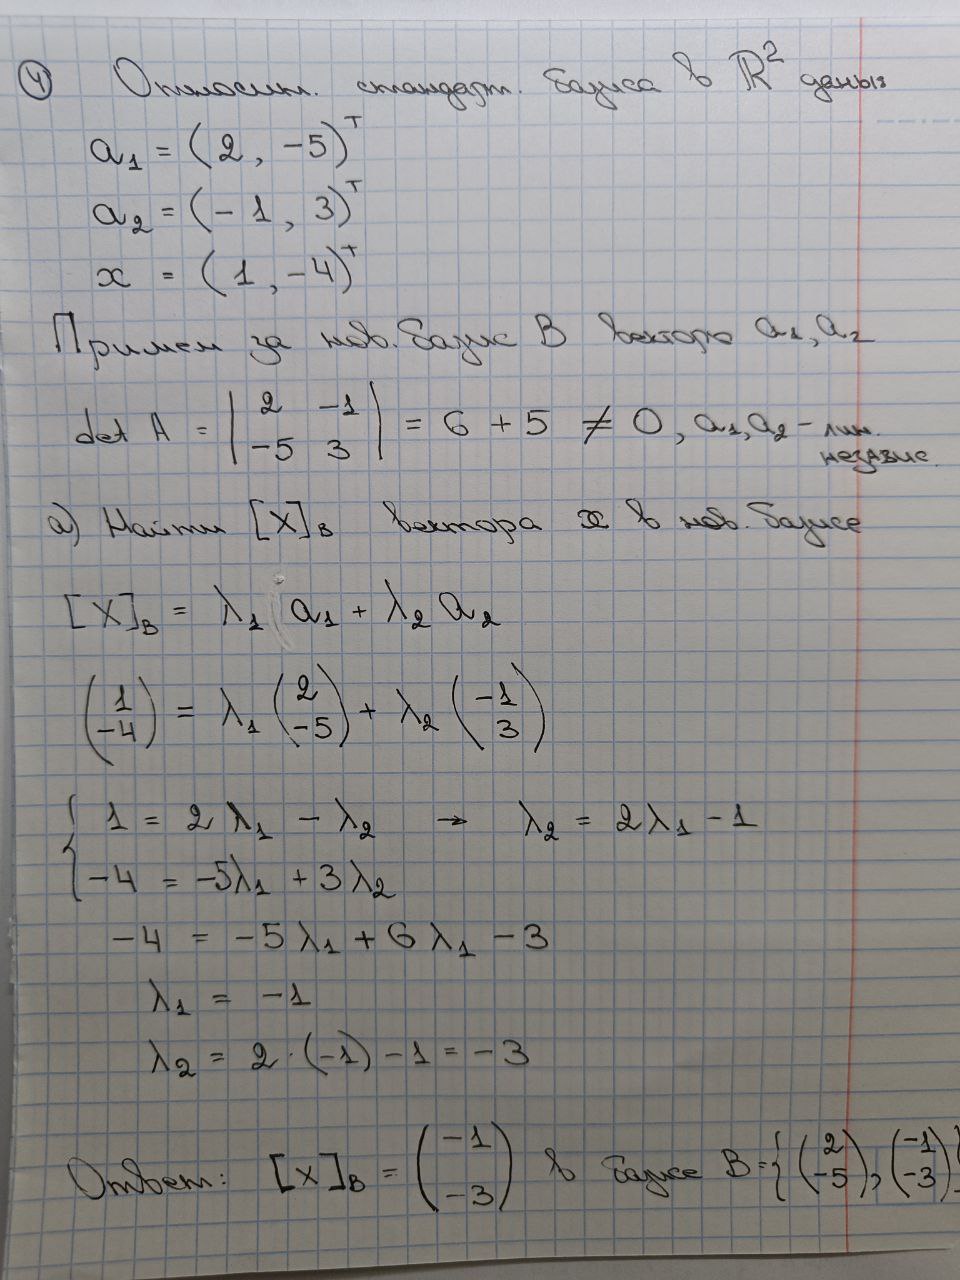 ④ Относит. стандарт. базиса в ℝ² даны
a₁ = (2, -5)ᵀ
a₂ = (-1, 3)ᵀ
x = (1, -4)ᵀ
Примем за нов. базис B вектора a₁, a₂
det A = |2 -1; -5 3| = 6 + 5 ≠ 0, a₁, a₂ - лин. независ.
а) Найти [X]_B вектора x в нов. базисе
[X]_B = λ₁ a₁ + λ₂ a₂
(1; -4) = λ₁ (2; -5) + λ₂ (-1; 3)
{ 1 = 2λ₁ - λ₂ → λ₂ = 2λ₁ - 1
-4 = -5λ₁ + 3λ₂
-4 = -5λ₁ + 6λ₁ - 3
λ₁ = -1
λ₂ = 2·(-1) - 1 = -3
Ответ: [X]_B = (-1; -3) в базисе B = {(2; -5), (-1; -3)}